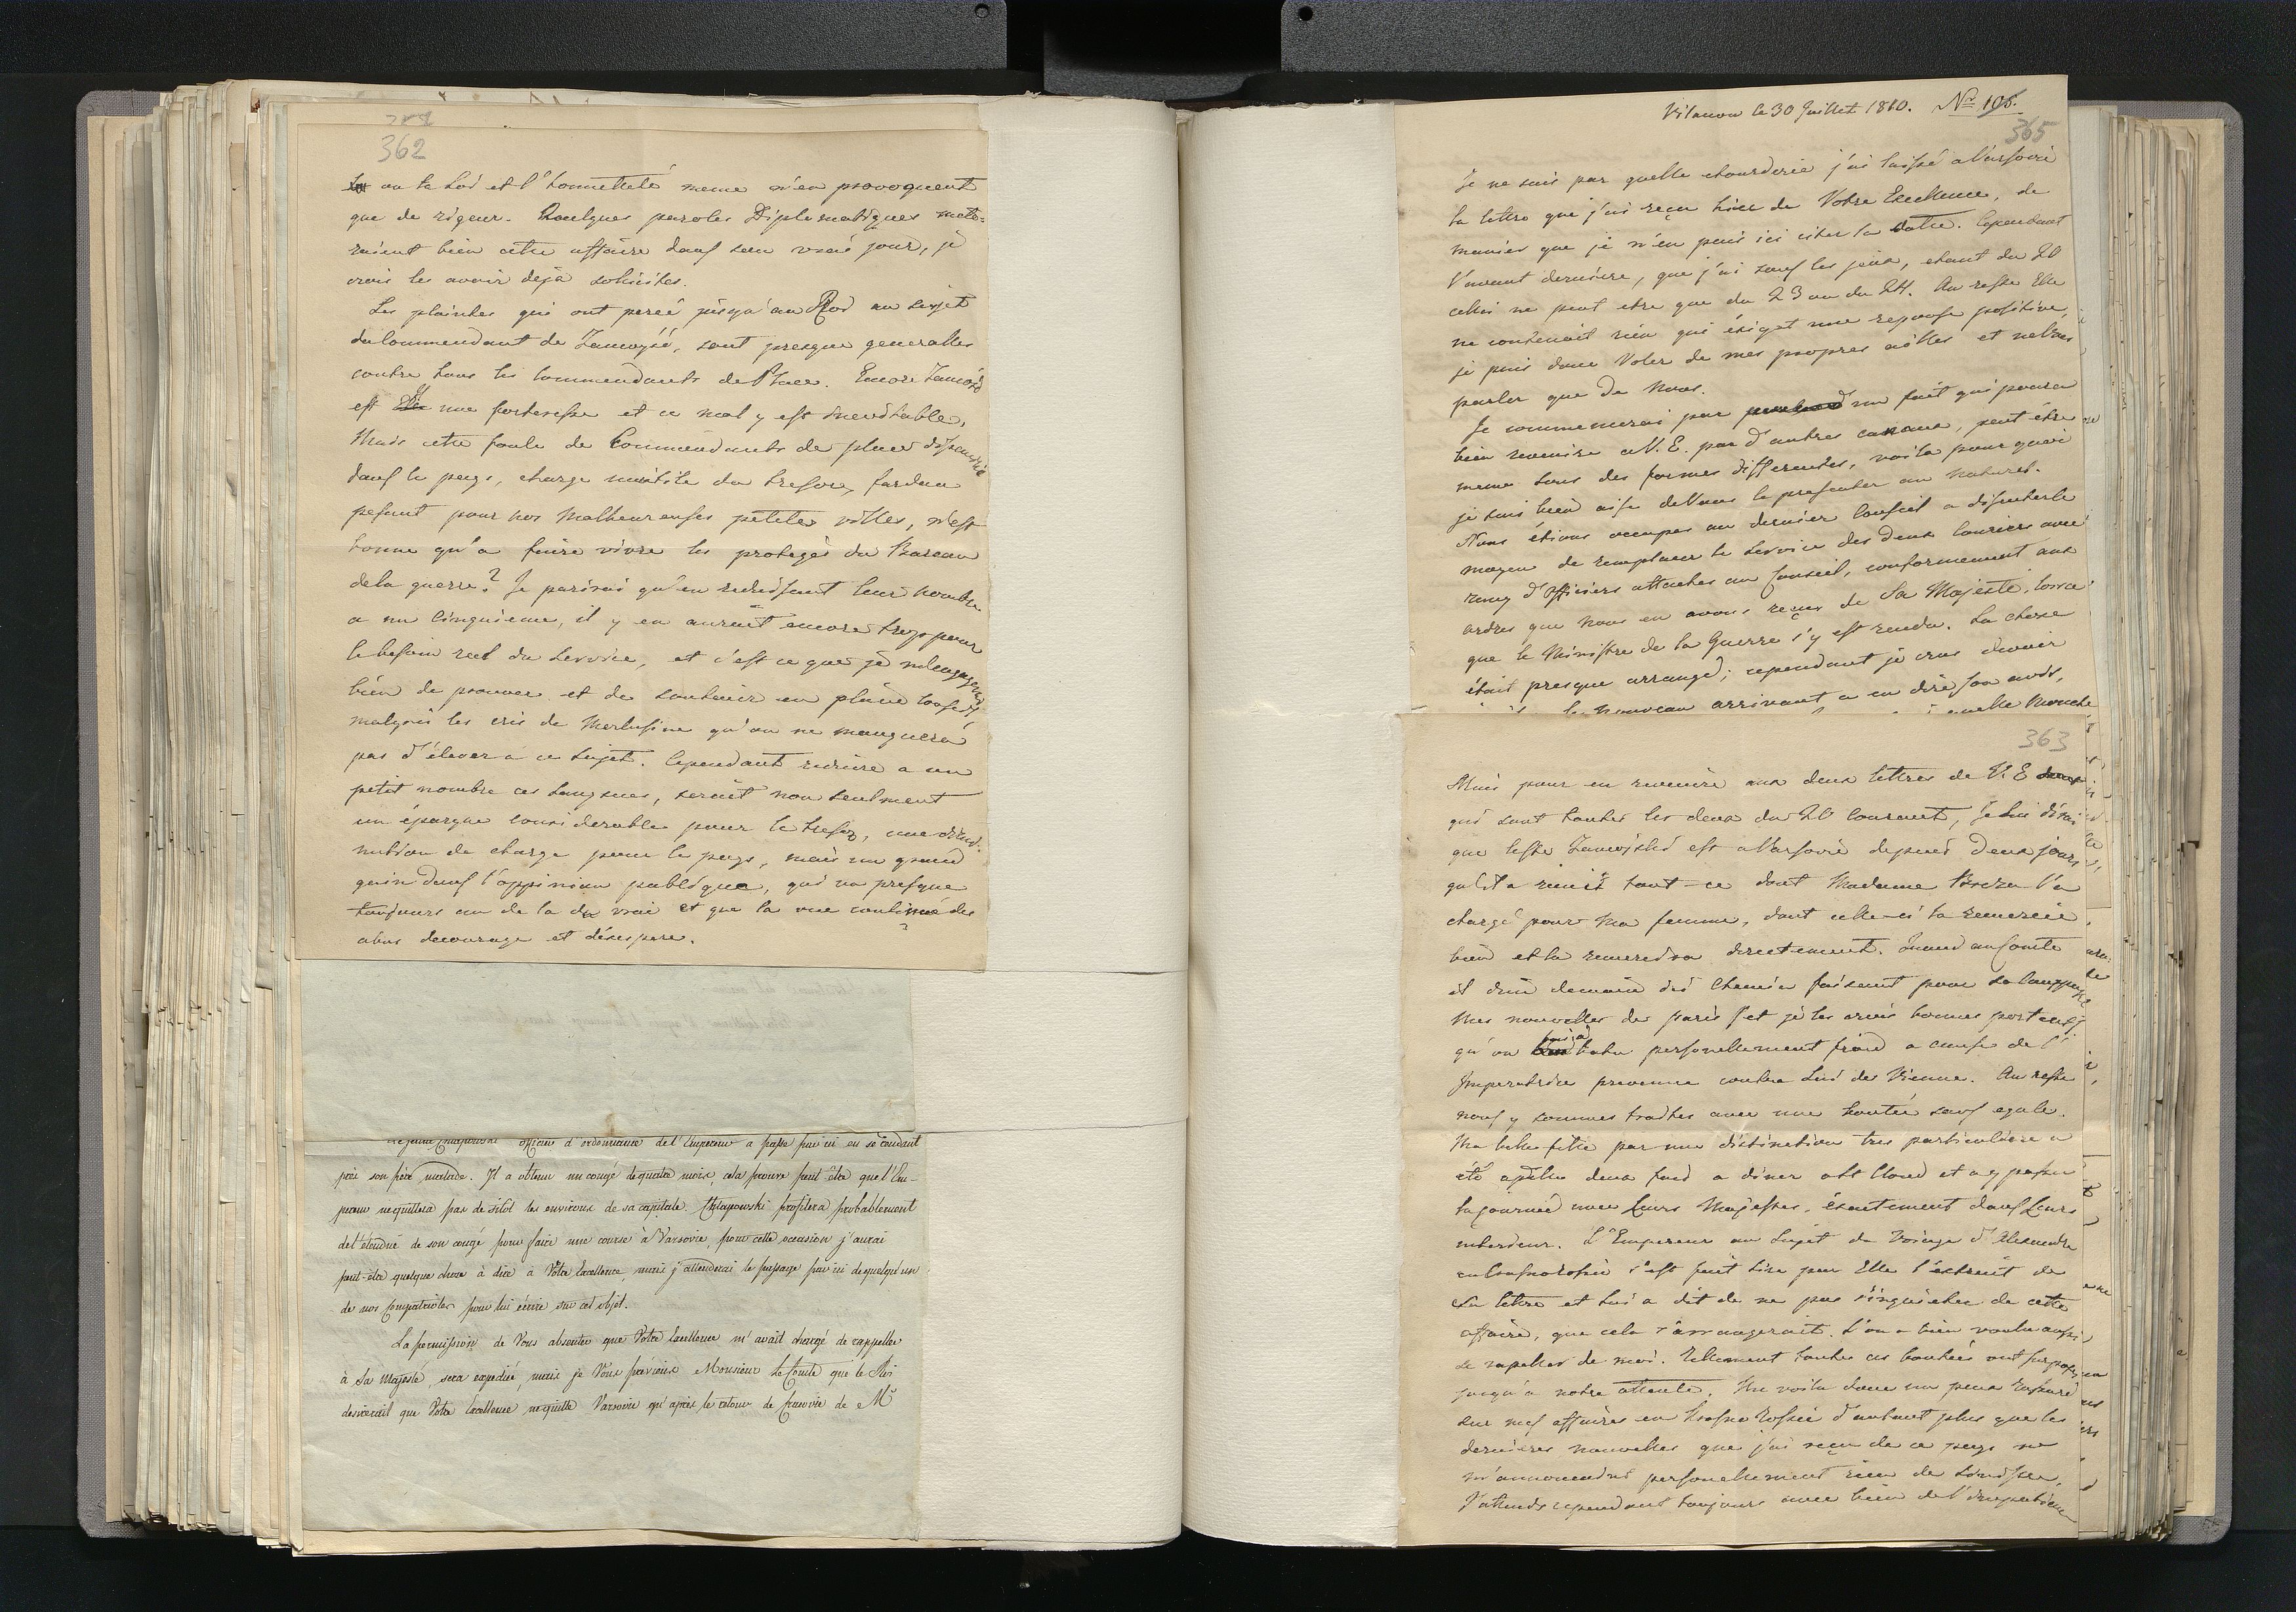 362
ou la Loi et l'honnetteté meme n'en provoquent
que de rigeur. Quelques paroles Diplomatiques mete-
raient bien cette affaire dans son vrai jour, je
crois les avoir deja solicités.
Les plaintes qui ont percé jusqu'au Roi au sujet
du Commendant de Zamość, sont presque generalles
contre tous les Commendants de Place. Encore Zamość
est une forteresse et ce mal y est inevitable,
Mais cette foule de Commendants de place
dans le pays, charge inutile du tresor, fardeau
pesant pour nos Malheureuses petites villes, n'est
bonne qu'a faire vivre les protegés du Bureau
de la guerre? Je parirai qu'en reduisant leur nombre
a un Cinquieme, il y en aurait encore trop pour
le besoin reel du service, et c'est ce que je
bien de prouver et de soutenir en plein Conseil,
malgré les cris de Merlusine qu'on ne manquera
pas d'élever a ce sujet. Cependant reduire a un
petit nombre ces sangsues, serait non seulment
un épargne considerable pour le tresor, une dimi-
nution de charge pour le pays, mais un grand
gain dans l'oppinion publique, qui va presque
toujours au de la du vrai et que la vue continué des
abus decourage et désespere.
officier d'ordonnance de l'Empereur a passé par ici en se rendant
près son père malade. Il a obtenu un congé de quatre mois, cela prouve peut être que l'Em-
pereur ne quittera pas de sitôt les environs de sa capitale. Chłapowski profitera probablement
de l'étendue de son congé pour faire une course à Varsovie, pour cette occasion j'aurai
peut-être quelque chose à dire à Votre Excellence, mais j'attenderai le passage par ici de quelqu'un
de nos Compatriotes pour lui écrire sur cet objet.
La permission de Vous absenter que Votre Excellence m'avait chargé de rappeller
à Sa Majesté, sera expediée, mais je Vous préviens Monsieur le Comte que le Roi
desirerait que Votre Excellence ne quitte Varsovie qu'après le retour de Cracovie de Mr
Vilanow le 30 Juillet 1810. Nr 105.
365
Je ne sais par quelle etourderie j'ai laissé a Varsovie
la lettre que j'ai reçu hier de Votre Excellence, de
manier que je n'en puis ici citer la datte. Cependant
l'avant derniere, que j'ai sous les yeux, etant du 20
celle ci ne peut etre que du 23 ou du 24. Au reste Elle
ne contenait rien qui éxiget une reponse positive,
je puis donc Voler de mes propres aîlles et ne Vous
parler que de Nous.
Je commencerai par un fait qui poura
bien revenire a V. E. par d'autres canaux, peut-être
meme sous des formes differentes, voila pourquoi
je suis bien aise de Vous le presenter au naturel.
Nous étions occupes au dernier Conseil a discuter le
moyen de remplacer le service des deux Couriers avec
rang d'Officiers attachés au Conseil, conformement aux
ordres que nous en avons reçus de Sa Majesté, lors
que le Ministre de la Guerre s'y est rendu. La chose
était presque arrangé; cependant je crus devoir
le nouveau arrivant a en dire son avis,
quelle Mouche
363
Mais pour en revenire aux deux lettres de V. E
qui sont toutes les deux du 20 courant, Je lui dirai
que est a Varsovie depuis deux jours
qu'il a remis tout-ce dont Madame Breza l'a
chargé pour ma femme, dont celle-ci la remercie
bien et la remercira directement. Quand au Comte
il dine demain ici Chemin faisant pour
Mes nouvelles de paris et je les crois bonnes portent
qu'on personellement froid a cause de l'
Imperatrice prevenue contre Lui de Vienne. Au reste
nous y sommes traités avec une bontée sans egale.
Ma belle fille par une distinction tres particuliere a
été apellée deux fois a diner a St Cloud et a y passer
la journée avec Leurs Majestes, éxactement dans Leurs
interieur. L'Empereur au sujet du Voiage d'Alexandre
s'est fait lire par Elle l'extrait de
sa lettre et lui a dit de ne pas s'inquieter de cette
affaire, que cela s'arrangerait. L'on a bien voulu aussi
se rapeller de moi. Réllement toutes ces bontées ont surpassé
jusqu'a notre attente. Me voila donc un peux rassuré
sur mes affaires en d'autant plus que les
dernieres nouvelles que j'ai reçu de ce pays ne
m'annoncent personellement rien de sinistre.
J'attends cependant toujours avec bien de l'impatience